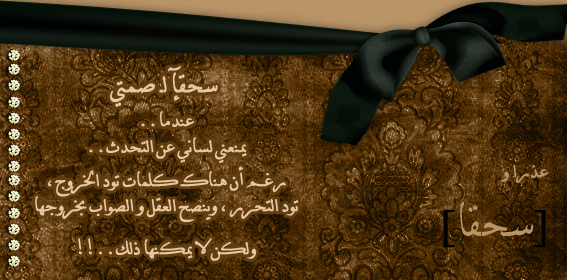 سحقاً لـ صمتي
عندما . .
يمنعني لساني عن التحدث . .
رغم أن هناك كلمات تود الخروج ،
تود التحرر ، وينصح العقل و الصواب بخروجها
ولكن لا يمكنها ذلك . . ! !
عذرا و
[سحقا]